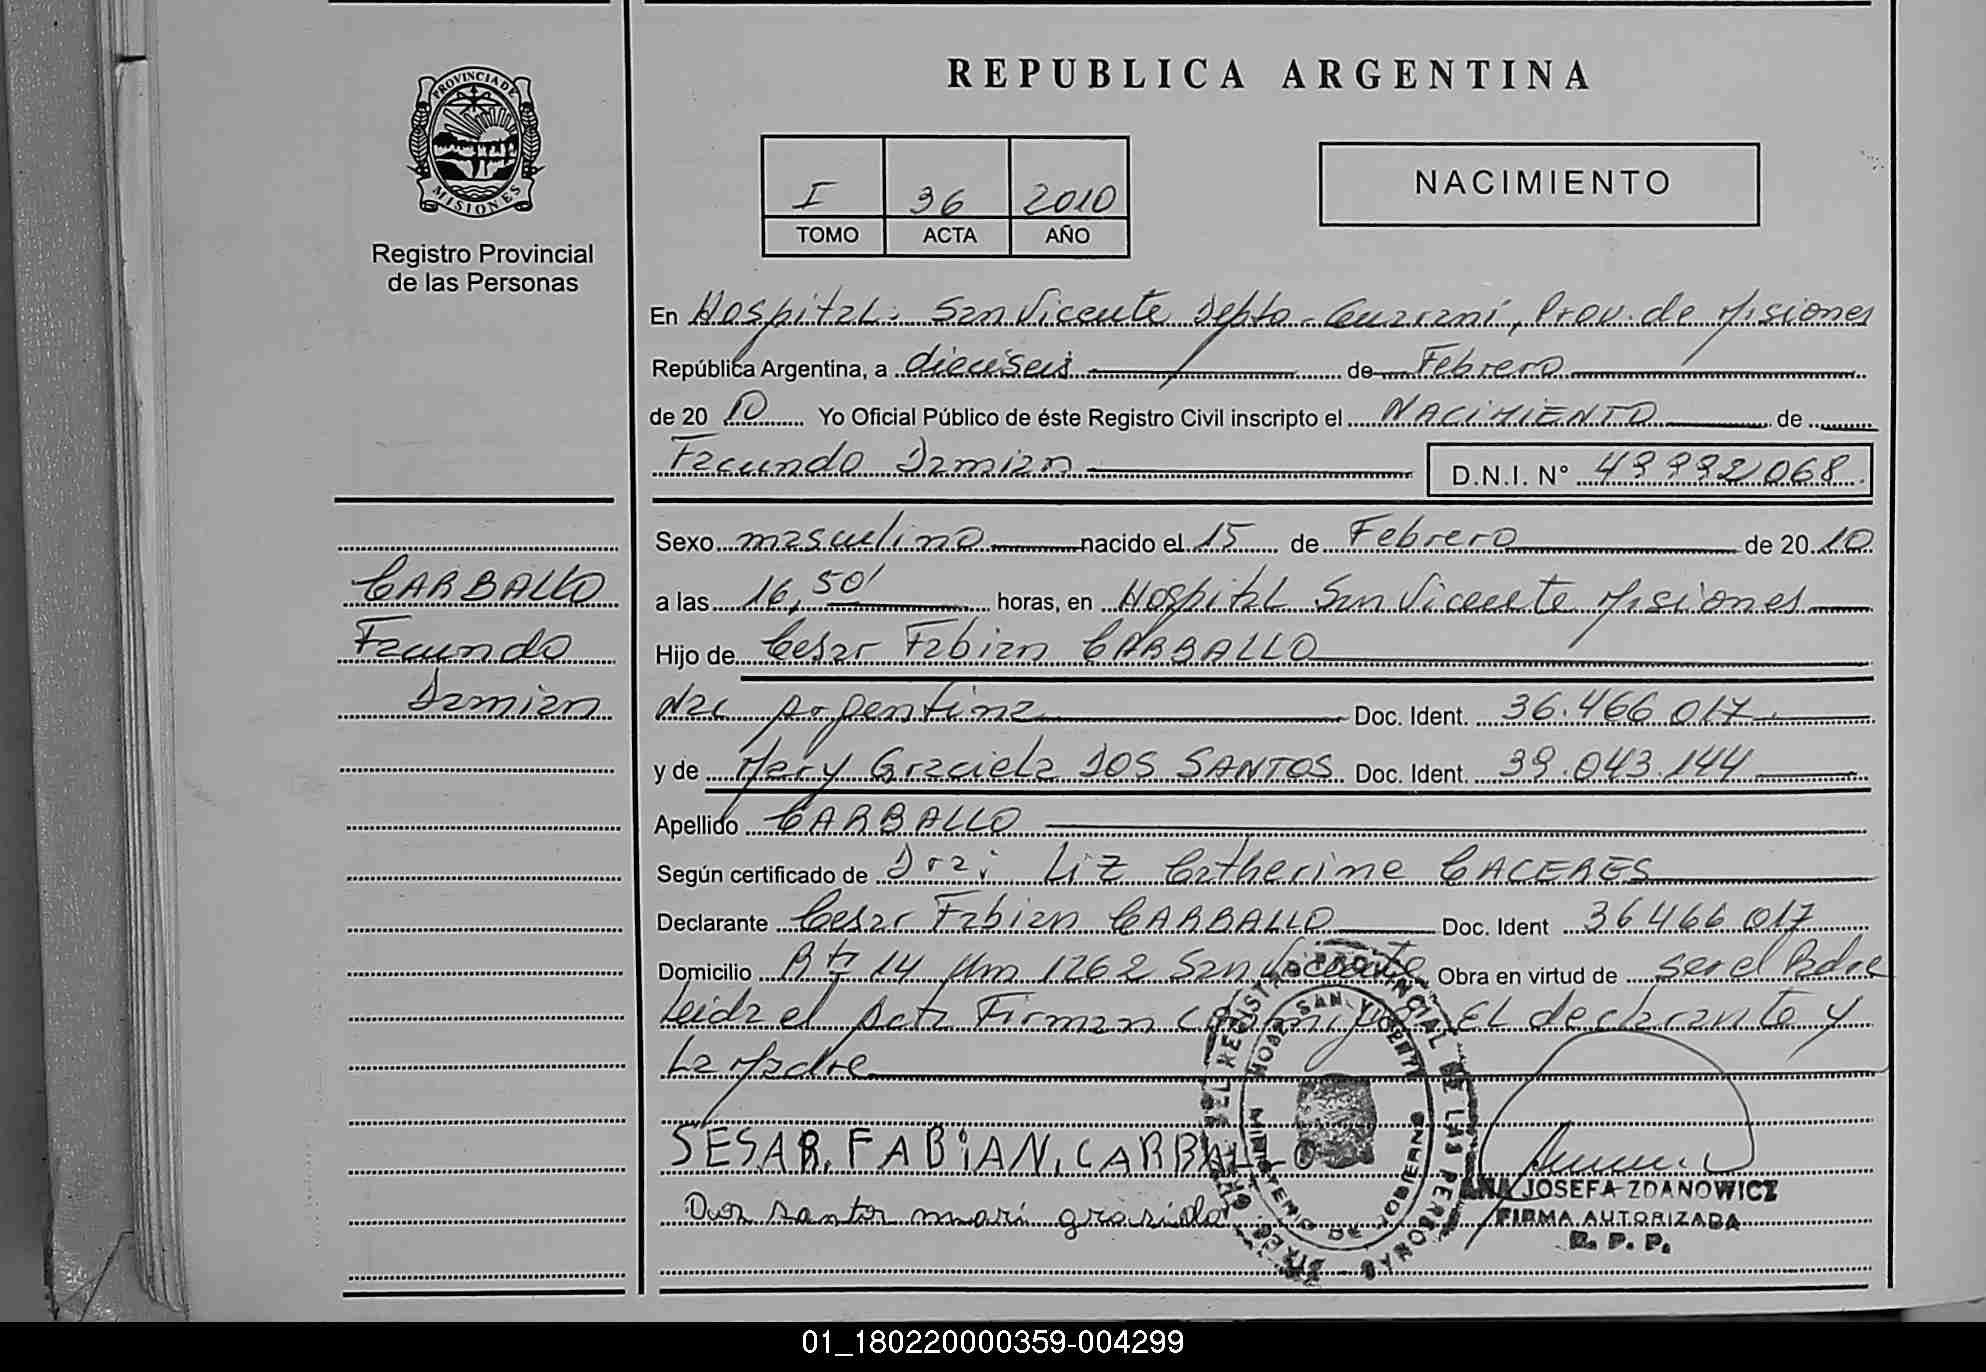 PROVINCIA DE
MISIONES
Registro Provincial
de las Personas
REPUBLICA ARGENTINA
I 36 2010
TOMO ACTA AÑO
NACIMIENTO
En Hospital: San Vicente Depto. Guaraní, Prov. de Misiones
República Argentina, a dieciseis de Febrero
de 20 10 Yo Oficial Público de éste Registro Civil inscripto el NACIMIENTO de
Facundo Damian D.N.I. N°
Sexo masculino nacido el 15 de Febrero de 20 10
a las 16,50' horas, en Hospital San Vicente Misiones
Hijo de Cesar Fabian CARBALLO
Nac Argentina Doc. Ident. 36.466 017
y de Mary Graciela DOS SANTOS Doc. Ident. 39.043.144
Apellido CARBALLO
Según certificado de Dra: Liz Catherine CACERES
Declarante Cesar Fabian CARBALLO Doc. Ident 36466 017
Domicilio Rta 14 Km 1262 San Vicente Obra en virtud de ser el Padre
Leida el Acta Firman conmigo EL declarante y
La Madre
SESAR, FABiAN, CARBALLO
Dos santos mari
CARBALLO
Facundo
Damian
DIREC. GRAL. DEL REGISTRO PROVINCIAL DE LAS PERSONAS
HOSP. SAN VICENTE
MINISTERIO DE GOBIERNO
ANA JOSEFA ZDANOWICZ
FIRMA AUTORIZADA
R. P. P.
01_180220000359-004299